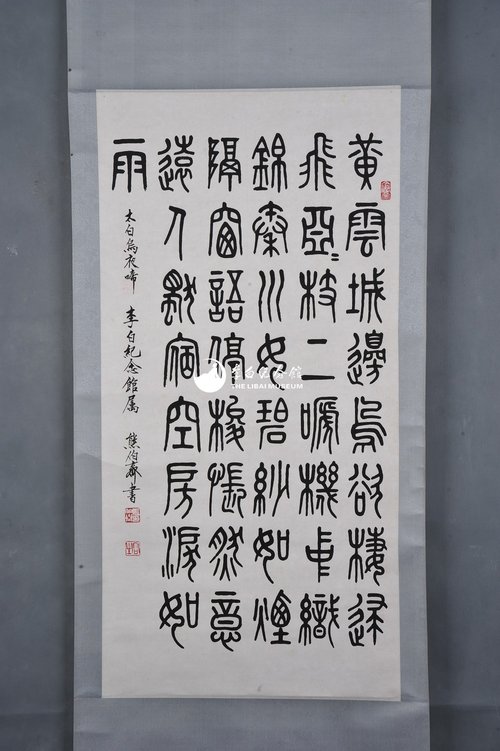 黃雲城邊烏欲棲歸
飛亞〻枝上嗁機中織
錦秦川女碧紗如煙
隔窗語停梭悵然意
遠人獨宿空房淚如
雨
太白烏夜啼 李白紀念館属 熊伯齊書
李白纪念館
THE LIBAI MUSEUM